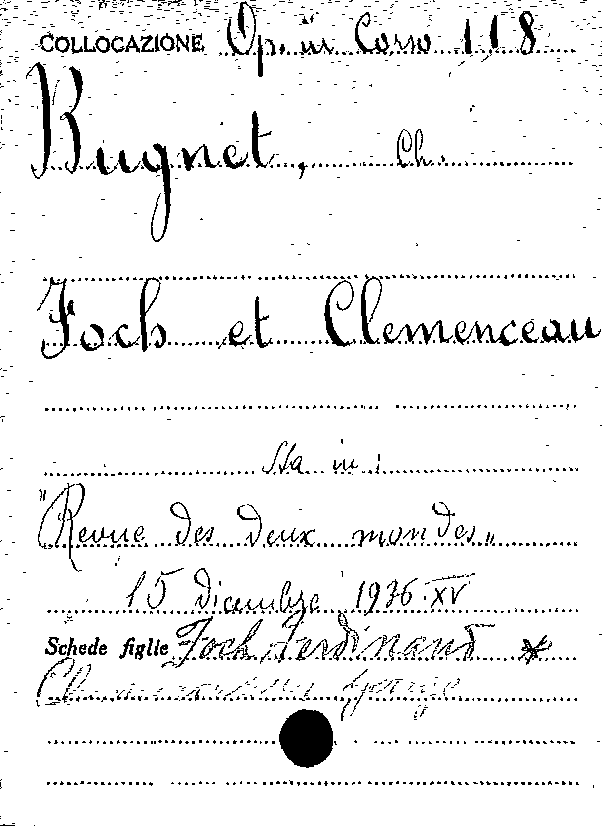 COLLOCAZIONE Op. in Corso 118
Bugnet, Ch.
Foch et Clemenceau
Sta in:
"Revue des deux mondes"
15 dicembre 1936.XV
Schede figlie Foch Ferdinand *
Clemenceau George